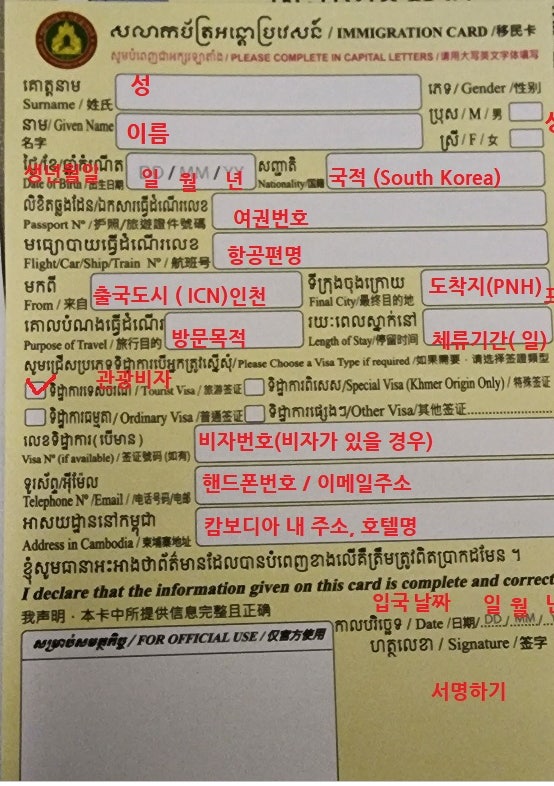 សលាកប័ត្រអន្តោប្រវេសន៍ / IMMIGRATION CARD /移民卡
សូមបំពេញជាអក្សរឡាតាំង / PLEASE COMPLETE IN CAPITAL LETTERS / 请用大写英文字体填写
គោត្តនាម
Surname / 姓氏
성
ភេទ/ Gender /性别
ប្រុស / M / 男
ស្រី / F / 女
នាម/ Given Name
名字
이름
ថ្ងៃ/ខែ/ឆ្នាំកំណើត
Date of Birth /出生日期
생년월일
DD / MM / YY
일 월 년
សញ្ជាតិ
Nationality/国籍
국적 (South Korea)
លិខិតឆ្លងដែន/ឯកសារធ្វើដំណើរលេខ
Passport Nº /护照/旅遊證件號碼
여권번호
មធ្យោបាយធ្វើដំណើរលេខ
Flight/Car/Ship/Train Nº / 航班号
항공편명
មកពី
From / 来自
출국도시 ( ICN)인천
ទីក្រុងចុងក្រោយ
Final City/最终目的地
도착지(PNH)
គោលបំណងធ្វើដំណើរ
Purpose of Travel / 旅行目的
방문목적
រយៈពេលស្នាក់នៅ
Length of Stay/停留时间
체류기간( 일)
សូមជ្រើសប្រភេទទិដ្ឋាការបើអ្នកត្រូវស្នើសុំ/Please Choose a Visa Type if required /如果需要 · 请选择签證類型
관광비자
ទិដ្ឋាការទេសចរណ៍ / Tourist Visa / 旅游签证
ទិដ្ឋាការពិសេស/Special Visa (Khmer Origin Only) / 特殊签证
ទិដ្ឋាការធម្មតា / Ordinary Visa / 普通签证
ទិដ្ឋាការផ្សេងៗ/Other Visa/其他签证
លេខទិដ្ឋាការ (បើមាន)
Visa Nº (if available) / 签证號碼 (如有)
비자번호(비자가 있을 경우)
ទូរស័ព្ទ/អ៊ីម៉ែល
Telephone Nº /Email / 电话号码/电邮
핸드폰번호 / 이메일주소
អាសយដ្ឋាននៅកម្ពុជា
Address in Cambodia / 柬埔寨地址
캄보디아 내 주소, 호텔명
ខ្ញុំសូមធានាអះអាងថាព័ត៌មានដែលបានបំពេញខាងលើគឺត្រឹមត្រូវពិតប្រាកដមែន ។
I declare that the information given on this card is complete and correct
我声明 · 本卡中所提供信息完整且正确
입국 날짜 일 월
កាលបរិច្ឆេទ / Date /日期/ DD / MM /
ហត្ថលេខា / Signature /签字
សម្រាប់សមត្ថកិច្ច / FOR OFFICIAL USE / 仅官方使用
서명하기